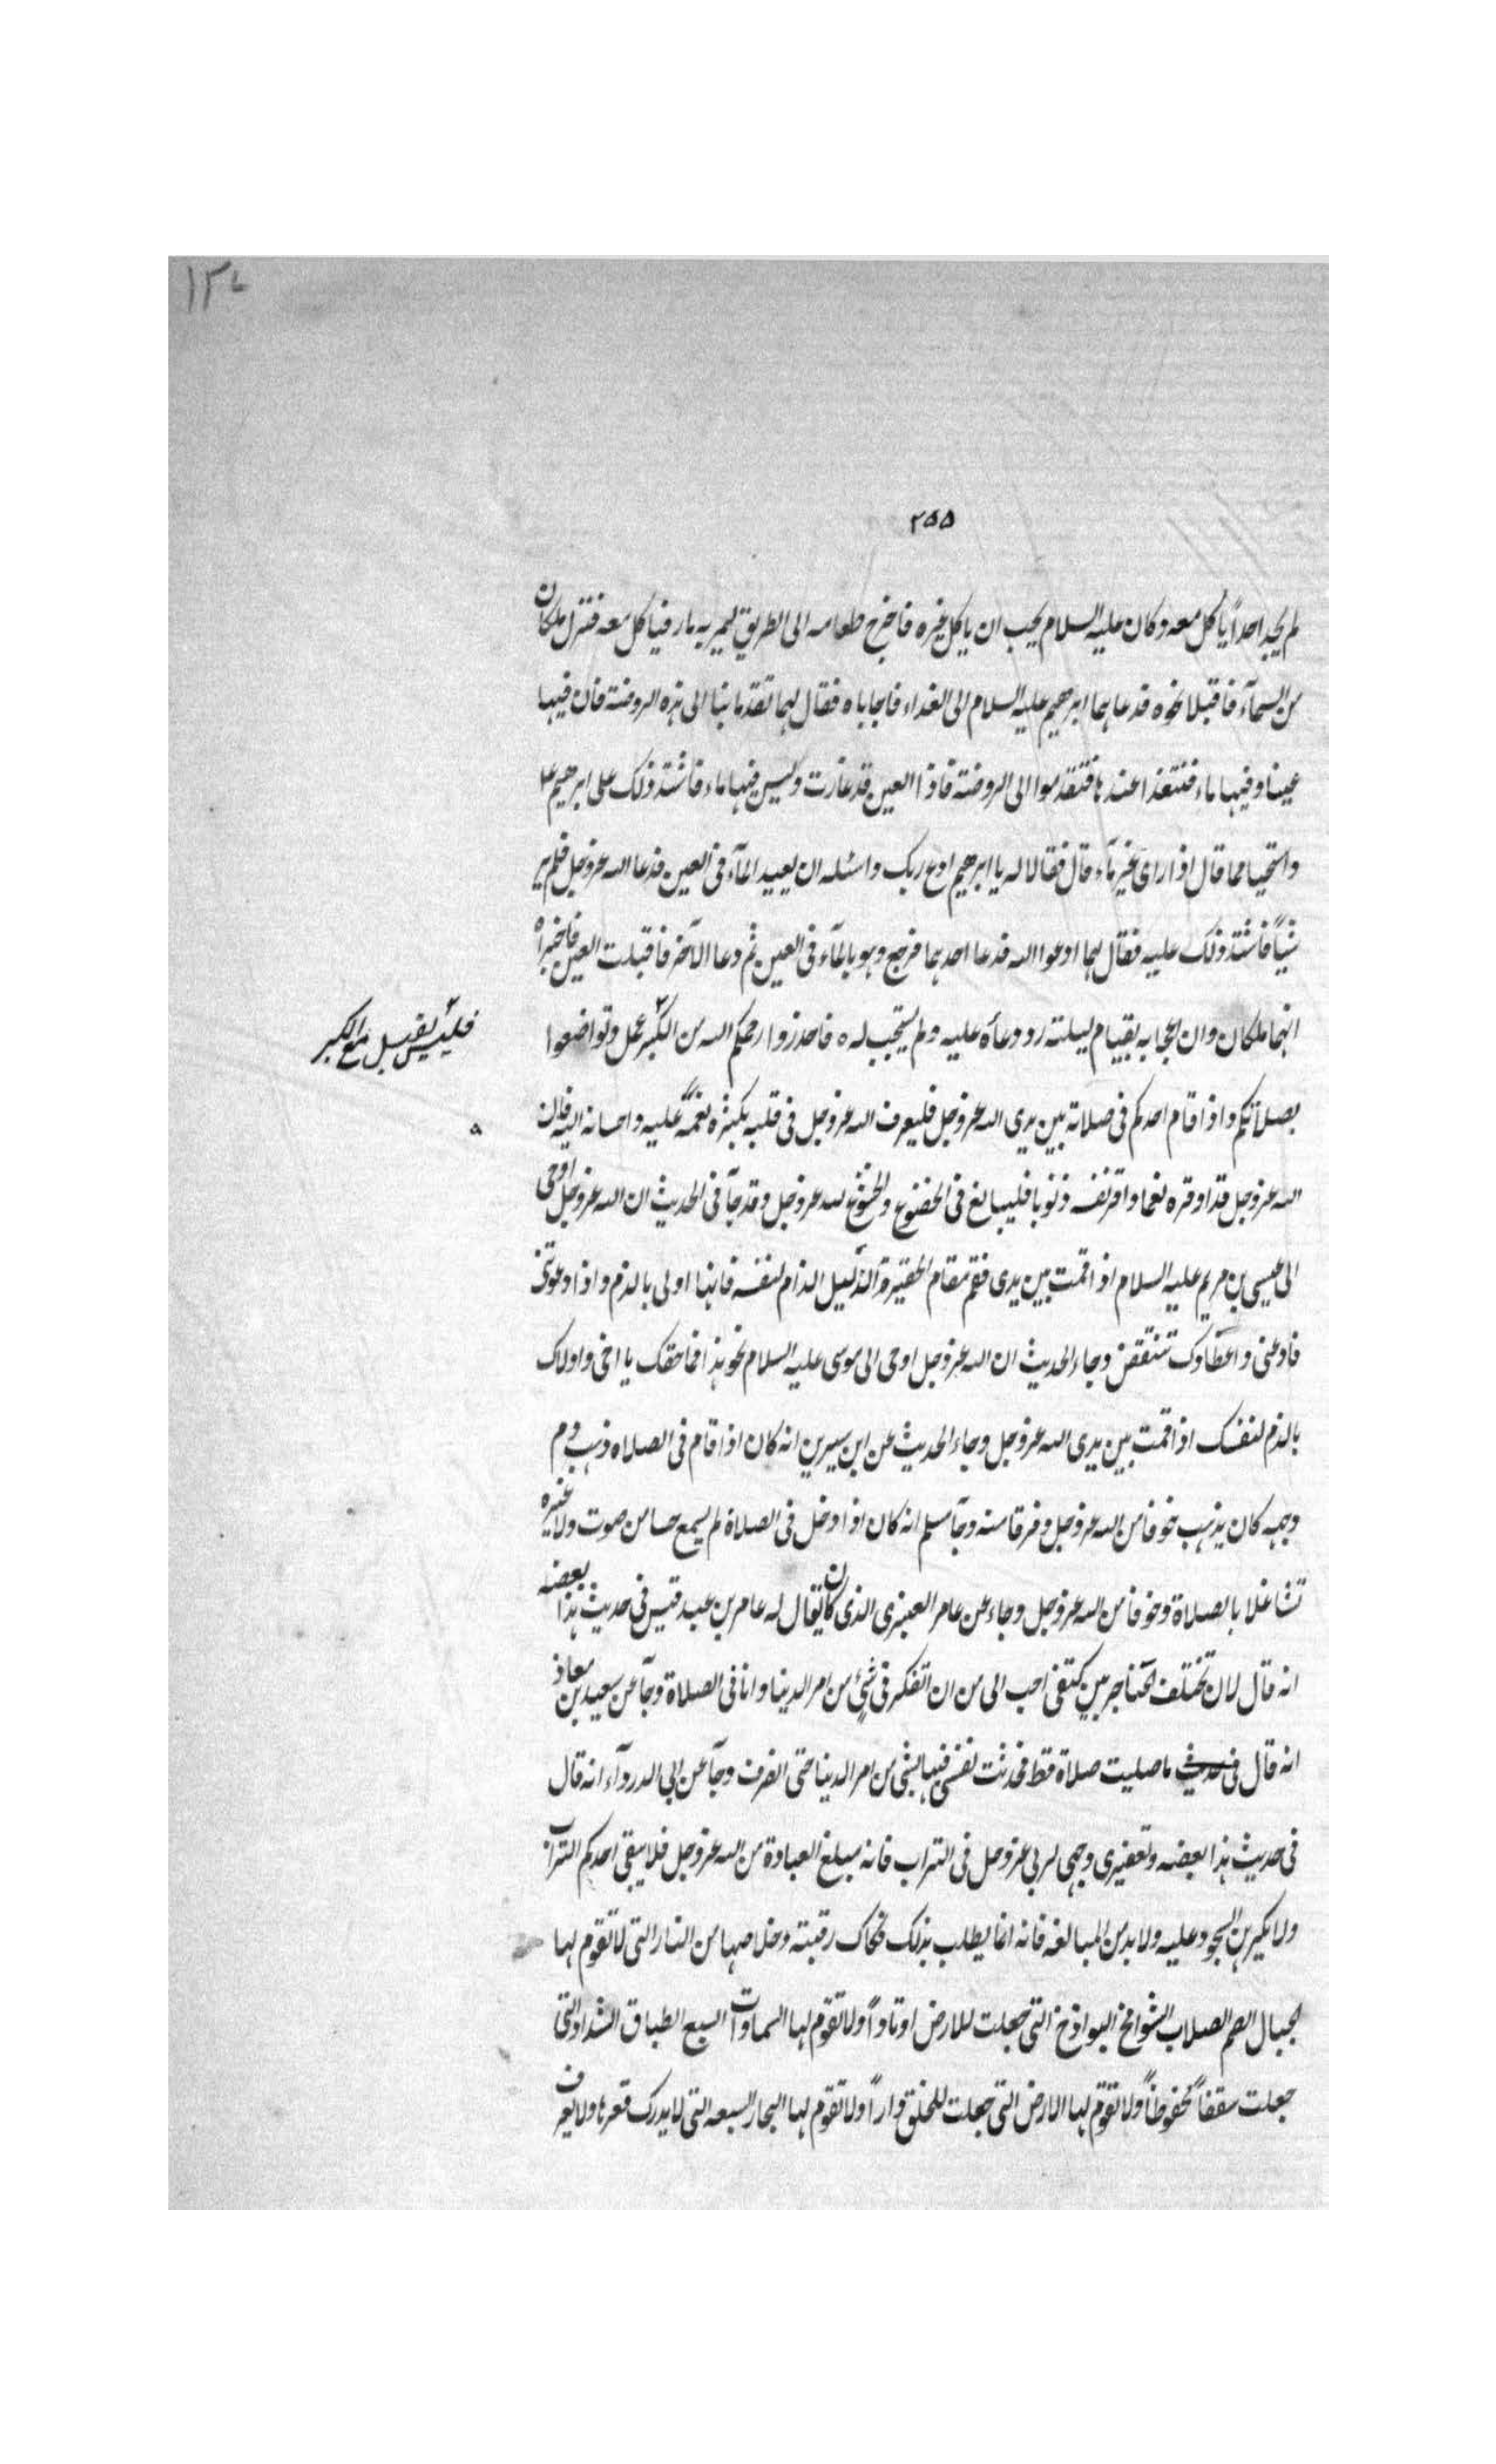 ١٣٨
٢٥٥
لم يجد احداً ياكل معه وكان عليه السلام يحب ان ياكل غيره فاخرج طعامه الى الطريق ليمر به مار فياكل معه فنزل ملكان
من السمآء فاقبلا نحوه فدعاهما ابرهيم عليه السلام الى الغداء فاجاباه فقال لهما تقدما بنا الى هذه الروضة فان فيها
عينا وفيها ماء فنتغذا عندها فتقدموا الى الروضة فاذا العين قد غارت وليس فيها ماء فاشتد ذلك على ابرهيم ع
واستحيا مما قال اذا راى غير مآء قال فقالا له يا ابرهيم ادع ربك واسئله ان يعيد المآء فى العين فدعا الله عز وجل فلم ير
شيأً فاشتد ذلك عليه فقال لهما ادعوا الله فدعا احدهما فرجع وهو بالمآء فى العين ثم دعا الآخر فاقبلت العين فاخبراه
انهما ملكان وان اعجابه بقيام ليلته رد دعآه عليه ولم يستجب له ٥ فاحذروا رحمكم الله من الكبر عمل وتواضعوا
فليس يقبل مع الكبر
بصلاتكم واذا قام احدكم فى صلاته بين يدى الله عز وجل فليعرف الله عز وجل فى قلبه بكثرة نعمه عليه واحسانه اليه فان
الله عز وجل قد اوقره نعما واقر نفسه ذنوبا فليبالغ فى الخضوع والخشوع لله عز وجل وقد جآ فى الحديث ان الله عز وجل اوحى
الى عيسى بن مريم عليه السلام اذا قمت بين يدى فقم مقام الحقير الذليل الذام لنفسه فانها اولى بالذم واذا دعوتنى
فادعنى واعضاوك تنتفض وجاء الحديث ان الله عز وجل اوحى الى موسى عليه السلام نحو هذا فما احقك يا اخى واولاك
بالذم لنفسك اذا قمت بين يدى الله عز وجل وجاء الحديث عن ابن سيرين انه كان اذا قام فى الصلاة ذهب دم
وجهه كان يذهب خوفا من الله عز وجل وفرقا منه وجآ مسلم انه كان اذا دخل فى الصلاة لم يسمع حسا من صوت ولا غيره
تشاغلا بالصلاة وخوفا من الله عز وجل وجاء عن عامر العنبرى الذى كان يقال له عامر بن عبد قيس فى حديث هذا بعضه
انه قال لان تختلف الخناجر بين كتفى احب الى من ان اتفكر فى شئ من امر الدنيا وانا فى الصلاة وجآ عن سعيد بن معاذ
انه قال فى حديث ما صليت صلاة قط فحدثت نفسى فيها بشئ من امر الدنيا حتى انصرف وجآ عن ابى الدردآء انه قال
فى حديث هذا بعضه وتعفيرى وجهى لربى عز وجل فى التراب فانه مبلغ العبادة من الله عز وجل فلا يتقى احدكم التراب
ولا يكرهن السجود عليه ولا بد من المبالغه فانه انما يطلب بذلك فكاك رقبته وخلاصها من النار التى لا تقوم لها
الجبال الصم الصلاب الشوامخ البواذخ التى جعلت للارض اوتاداً ولا تقوم لها السماوات السبع الطباق الشداد التى
جعلت سقفاً محفوظاً ولا تقوم لها الارض التى جعلت للخلق قراراً ولا تقوم لها البحار السبعه التى لا يدرك قعرها ولا يعرف